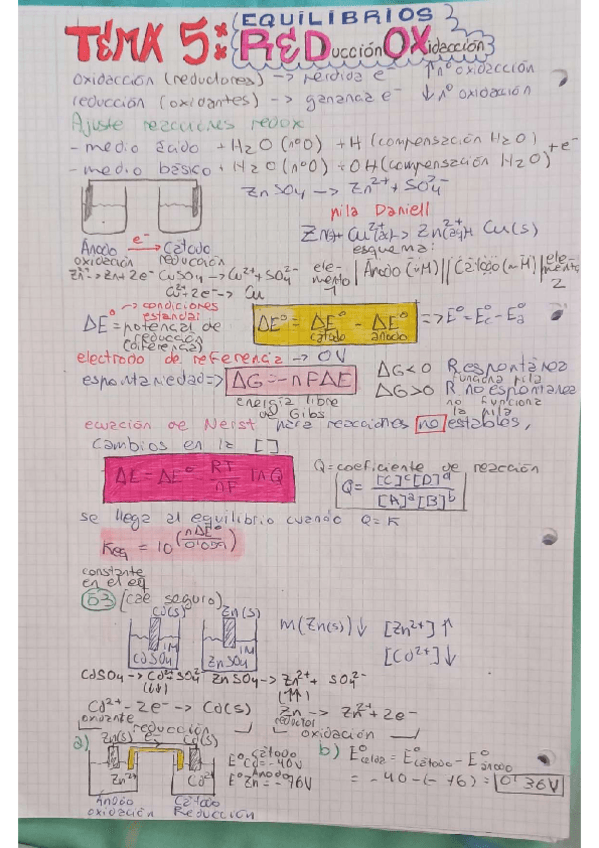 TEMA 5: EQUILIBRIOS
REDucción OXidacción
oxidacción (reductores) -> pérdida e⁻ ↑nº oxidacción
reducción (oxidantes) -> ganancia e⁻ ↓nº oxidación
Ajuste reacciones redox
- medio ácido + H₂O (nºO) + H (compensación H₂O) + e⁻
- medio básico + H₂O (nºO) + OH (compensación H₂O)
ZnSO₄ -> Zn²⁺ + SO₄²⁻
pila Daniell
Zn + Cu²⁺ -> Zn²⁺ + Cu(s)
esquema:
Ánodo e⁻ -> Cátodo
oxidación reducción
CuSO₄ -> Cu²⁺ + SO₄²⁻
Cu²⁺ + 2e⁻ -> Cu
elemento 1 | Ánodo (~M) || Cátodo (~M) | elemento 2
condiciones estandar
ΔEº = potencial de reducción (diferencia)
ΔEº = ΔEº cátodo - ΔEº ánodo => Eº = Eºc - Eºa
electrodo de referencia -> 0V
espontaniedad => ΔG = -nFΔE
energía libre de Gibs
ΔG<0 R espontánea
funciona pila
ΔG>0 R no espontanea
no funciona la pila
ecuación de Nerst para reacciones no estables,
cambios en la []
ΔE = ΔEº - RT/nF ln Q
Q = coeficiente de reacción
Q = [C]ᶜ[D]ᵈ / [A]ᵃ[B]ᵇ
se llega al equilibrio cuando Q = K
Keq = 10^(nΔEº/0'059)
constante en el eq
63 (cae seguro)
Cd(s) Zn(s)
1M 1M
CdSO₄ ZnSO₄
m(Zn(s))↓ [Zn²⁺]↑
[Cd²⁺]↓
CdSO₄ -> Cd²⁺ SO₄²⁻ ZnSO₄ -> Zn²⁺ + SO₄²⁻
(↓↓) (↑↑)
Cd²⁺ - 2e⁻ -> Cd(s) Zn -> Zn²⁺ + 2e⁻
oxidante reductor
reducción oxidación
a) Zn(s) e⁻ Cd(s)
Zn²⁺ Cd²⁺
Ánodo Cátodo
oxidación Reducción
Cátodo
EºCd = -'40V
Ánodo
EºZn = -'76V
b) Eºcelda = Eºcátodo - Eºánodo
= -'40 - (-'76) = 0'36V